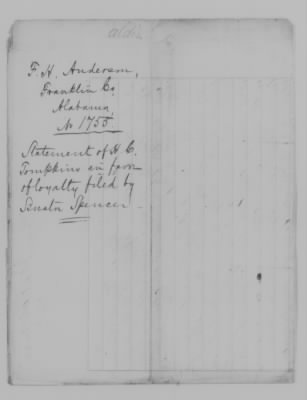 F. H. Anderson,
Franklin Co,
Alabama
No 1755
Statement of H. C.
Tompkins in favor
of loyalty filed by
Senator Spencer